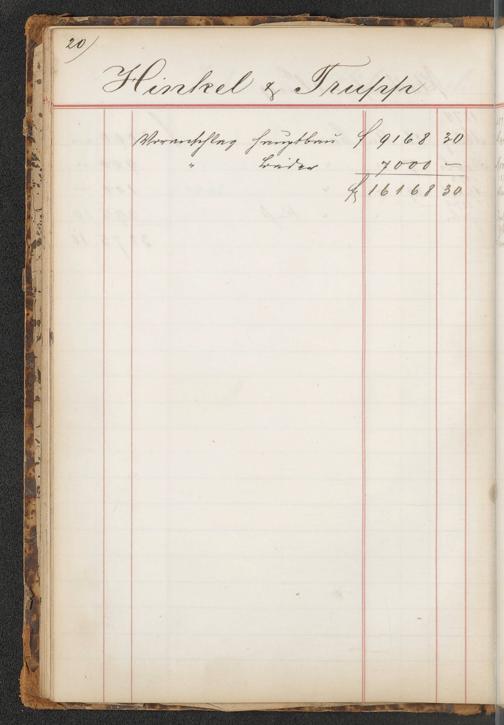 20)
Hinkel & Trupp
Voranschlag Hauptbau f 9168 30
" Bäder 7000 —
f 16168 30